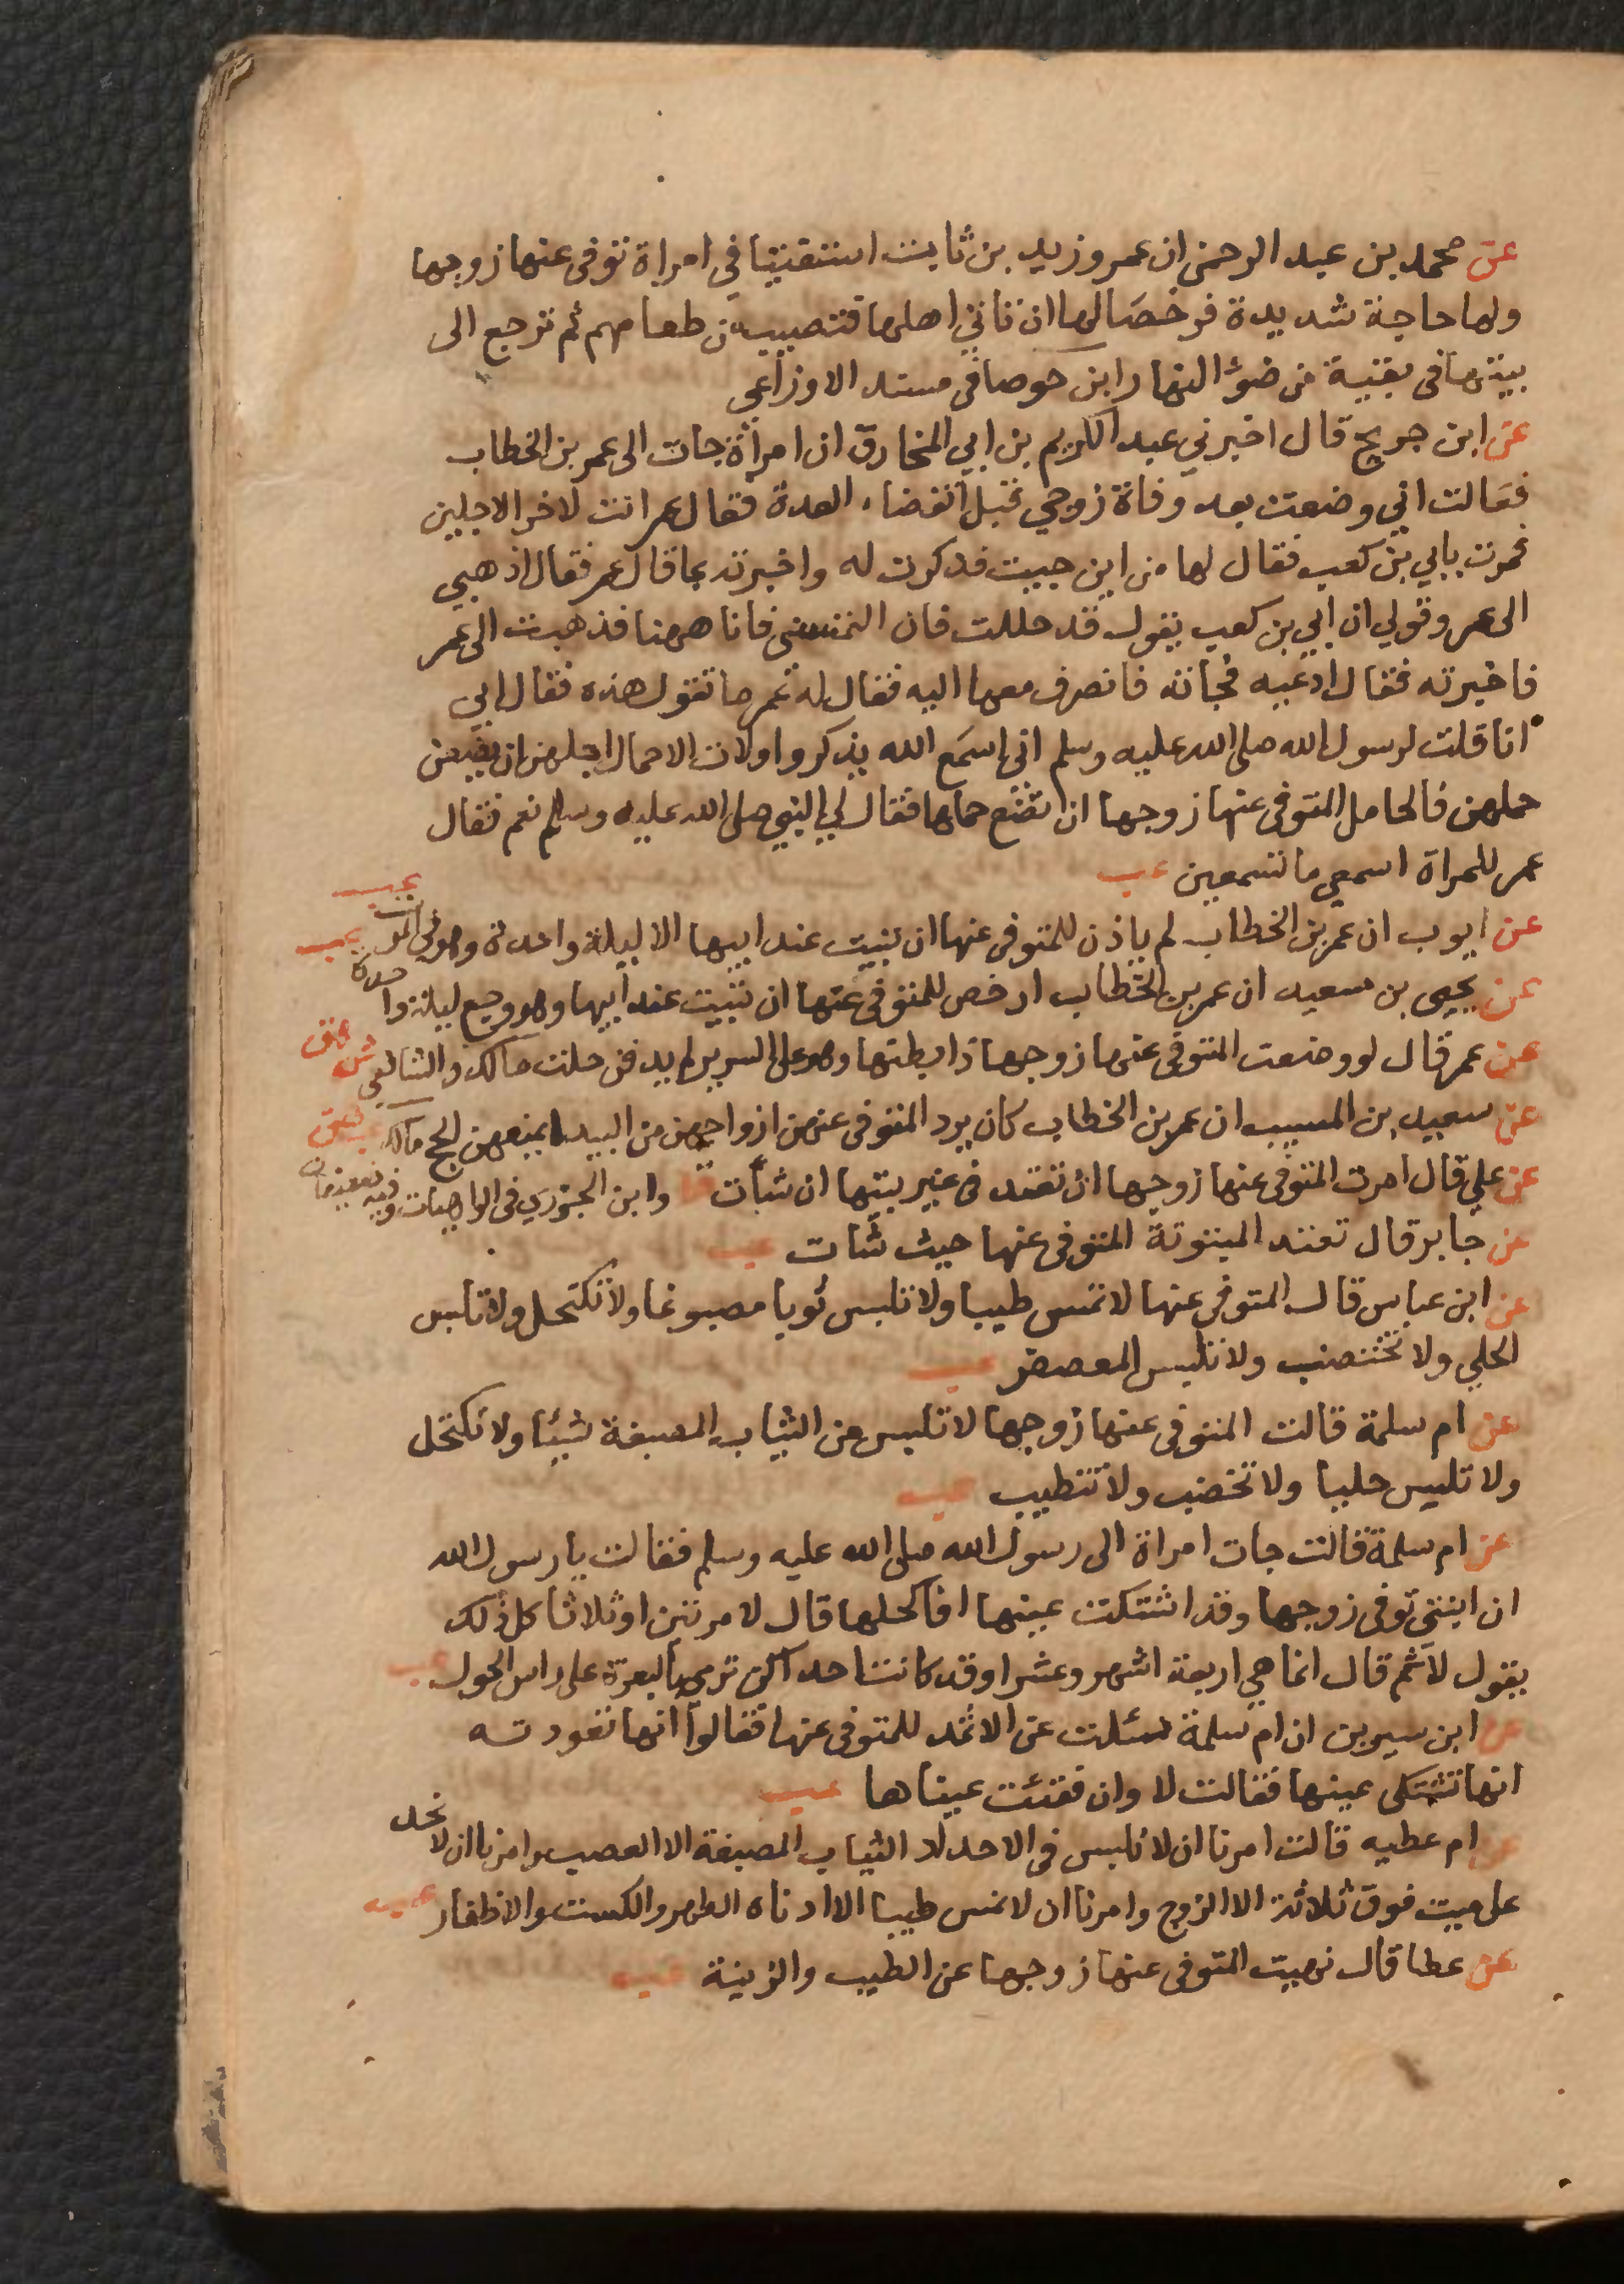 عن محمد بن عبد الرحمن ان عمر وزيد بن ثابت استفتيا في امراة توفى عنها زوجها
ولها حاجة شديدة فرخصا لها ان تاتي اهلها فتصيب من طعامهم ثم ترجع الى
بيتها فى بقية من ضوء النهار ابن حوصا فى مسند الاوزاعي
عن ابن جريج قال اخبرني عبد الكريم بن ابي المخارق ان امرأة جات الى عمر بن الخطاب
فقالت اني وضعت بعد وفاة زوجي قبل انقضاء العدة فقال عمر انت لاخر الاجلين
فمرت بابي بن كعب فقال لها من اين جيت فذكرت له واخبرته بما قال عمر فقال اذهبي
الى عمر وقولي ان ابي بن كعب يقول قد حللت فان التمسنى فانا ههنا فذهبت الى عمر
فاخبرته فقال ادعيه فجاته فانصرف معها اليه فقال له عمر ما تقول هذه فقال ابي
انا قلت لرسول الله صلى الله عليه وسلم انى اسمع الله يذكر واولات الاحمال اجلهن ان يضعن
حملهن فالحامل المتوفى عنها زوجها ان تضع حملها فقال لي النبي صلى الله عليه وسلم نعم فقال
عمر للمراة اسمعي ما تسمعين عب
عن ايوب ان عمر بن الخطاب لم ياذن للمتوفى عنها ان تبيت عند ابيها الا ليلة واحدة وهو في الموت عب
عن يحيى بن سعيد ان عمر بن الخطاب ارخص للمتوفى عنها ان تبيت عند ابيها وهو وجع ليلة واحدة عب
عن عمر قال لو وضعت المتوفى عنها زوجها ذا بطنها وهو على السرير لم يدفن حلت مالك والشافعي ش هق
عن سعيد بن المسيب ان عمر بن الخطاب كان يرد المتوفى عنهن ازواجهن من البيدا يمنعهن الحج مالك عب هق
عن علي قال امرت المتوفى عنها زوجها ان تعتد فى غير بيتها ان شات وابن الجوزي فى الواهيات وفيه
عن جابر قال تعتد المبتوتة المتوفى عنها حيث شات عب
عن ابن عباس قال المتوفى عنها لا تمس طيبا ولا تلبس ثوبا مصبوغا ولا تكتحل ولا تلبس
الحلي ولا تختضب ولا تلبس المعصفر عب
عن ام سلمة قالت المتوفى عنها زوجها لا تلبس من الثياب المصبغة شيئا ولا تكتحل
ولا تلبس حليا ولا تخضب ولا تتطيب عب
عن ام سلمة قالت جات امراة الى رسول الله صلى الله عليه وسلم فقالت يا رسول الله
ان ابنتي توفى زوجها وقد اشتكت عينها افاكحلها قال لا مرتين او ثلاثا كل ذلك
يقول لا ثم قال انما هي اربعة اشهر وعشرا وقد كانت احداكن ترمى بالبعرة على راس الحول عب
عن ابن سيرين ان ام سلمة سئلت عن الاثمد للمتوفى عنها فقالوا انها تعودته
انها تشتكى عينها فقالت لا وان فقئت عيناها عب
عن ام عطيه قالت امرنا ان لا نلبس فى الاحداد الثياب المصبغة الا العصب وامرنا ان لا نحد
على ميت فوق ثلاثة الا الزوج وامرنا ان لا نمس طيبا الا ادناه الطهر والكست والاظفار عب
عن عطا قال نهيت المتوفى عنها زوجها عن الطيب والزينة عب